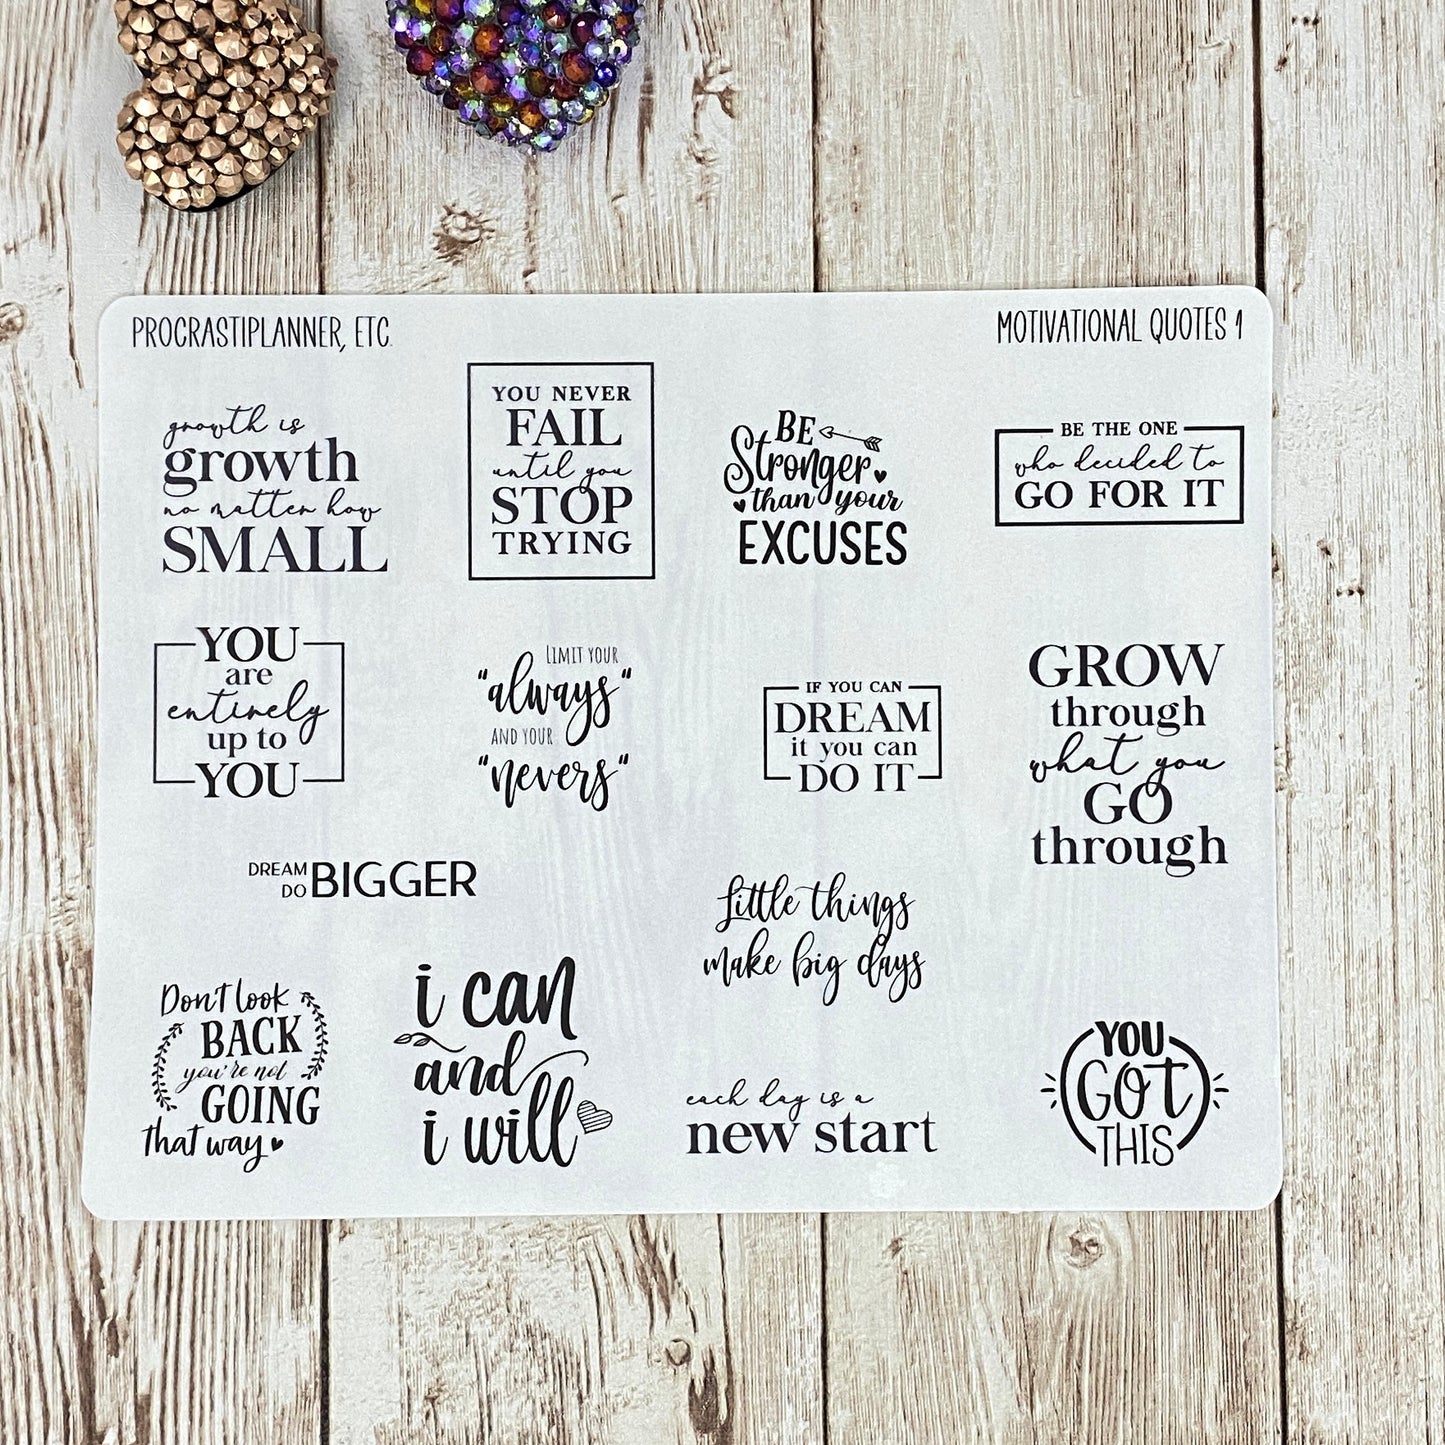 PROCRASTIPLANNER, ETC.
MOTIVATIONAL QUOTES 1
growth is
growth
no matter how
SMALL
YOU NEVER
FAIL
until you
STOP
TRYING
BE
Stronger
than your
EXCUSES
BE THE ONE
who decided to
GO FOR IT
YOU
are
entirely
up to
YOU
LIMIT YOUR
"always"
AND YOUR
"nevers"
IF YOU CAN
DREAM
it you can
DO IT
GROW
through
what you
GO
through
DREAM
DO BIGGER
Little things
make big days
Don't look
BACK
you're not
GOING
that way
i can
and
i will
each day is a
new start
YOU
GOT
THIS